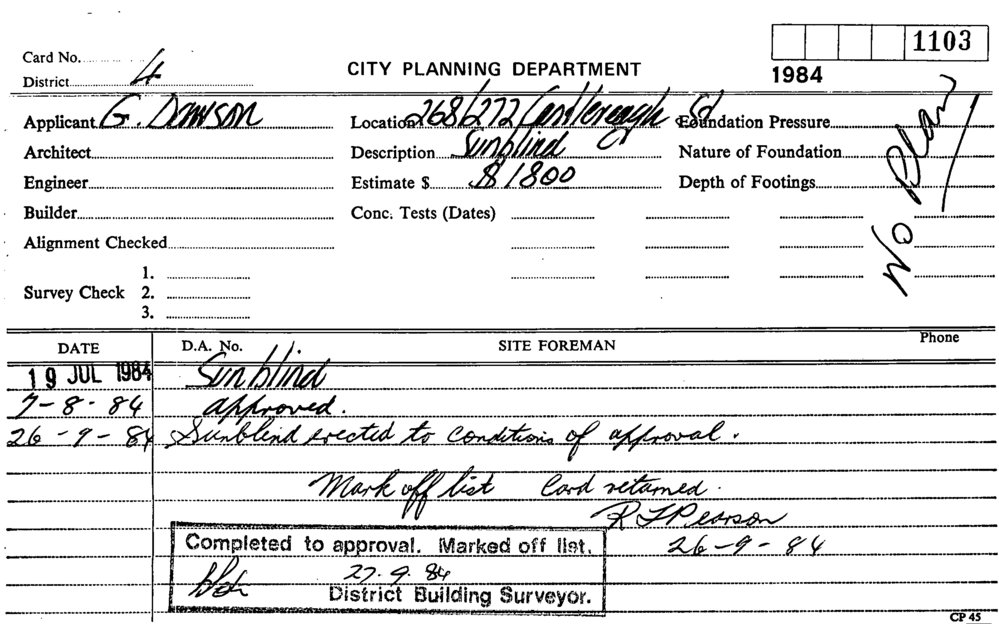 1103
Card No.
District 4
CITY PLANNING DEPARTMENT
1984
Applicant G. Dawson
Location 268/272 Castlereagh St
Foundation Pressure
Architect
Description Sunblind
Nature of Foundation
Engineer
Estimate $ $1800
Depth of Footings
Builder
Conc. Tests (Dates)
No Plan
Alignment Checked
1.
Survey Check 2.
3.
DATE D.A. No. SITE FOREMAN Phone
19 JUL 1984 Sunblind
7-8-84 approved.
26-9-84 Sunblind erected to conditions of approval.
Mark off list Card retarned.
R L Pearson
26-9-84
Completed to approval. Marked off list.
27.9.84
District Building Surveyor.
CP 45